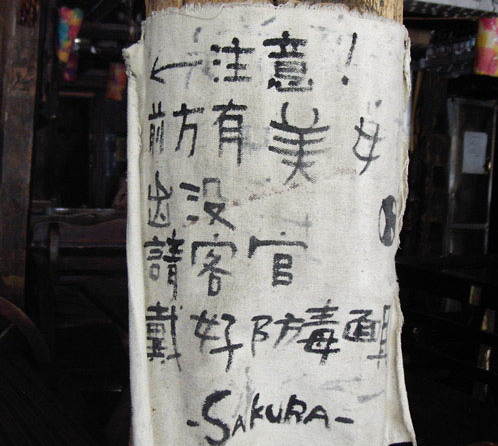 ←注意!
前方有美女
出沒
請客官
戴好防毒面具
-SAKURA-